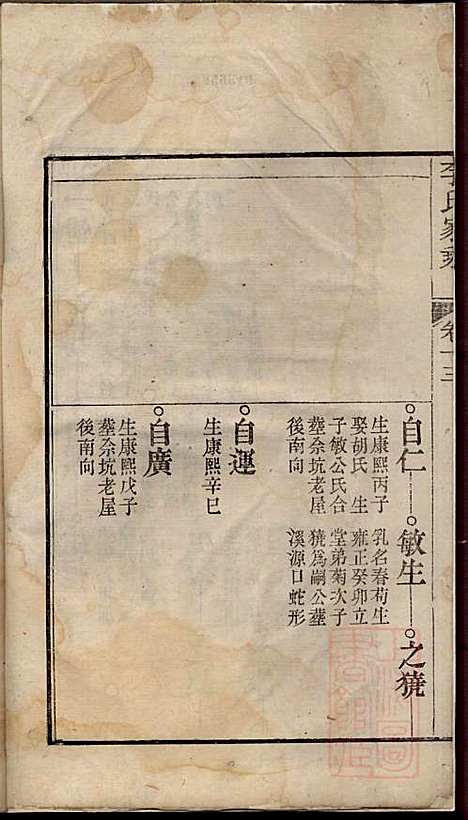 李氏家乘
卷十三
自仁
生康熙丙子
娶胡氏 生
子敏公氏合
塟佘坑老屋
後南向
敏生
乳名春荀生
雍正癸卯立
堂弟菊次子
㹓為嗣公塟
溪源口蛇形
之
自運
生康熙辛巳
自廣
生康熙戊子
塟佘坑老屋
後南向